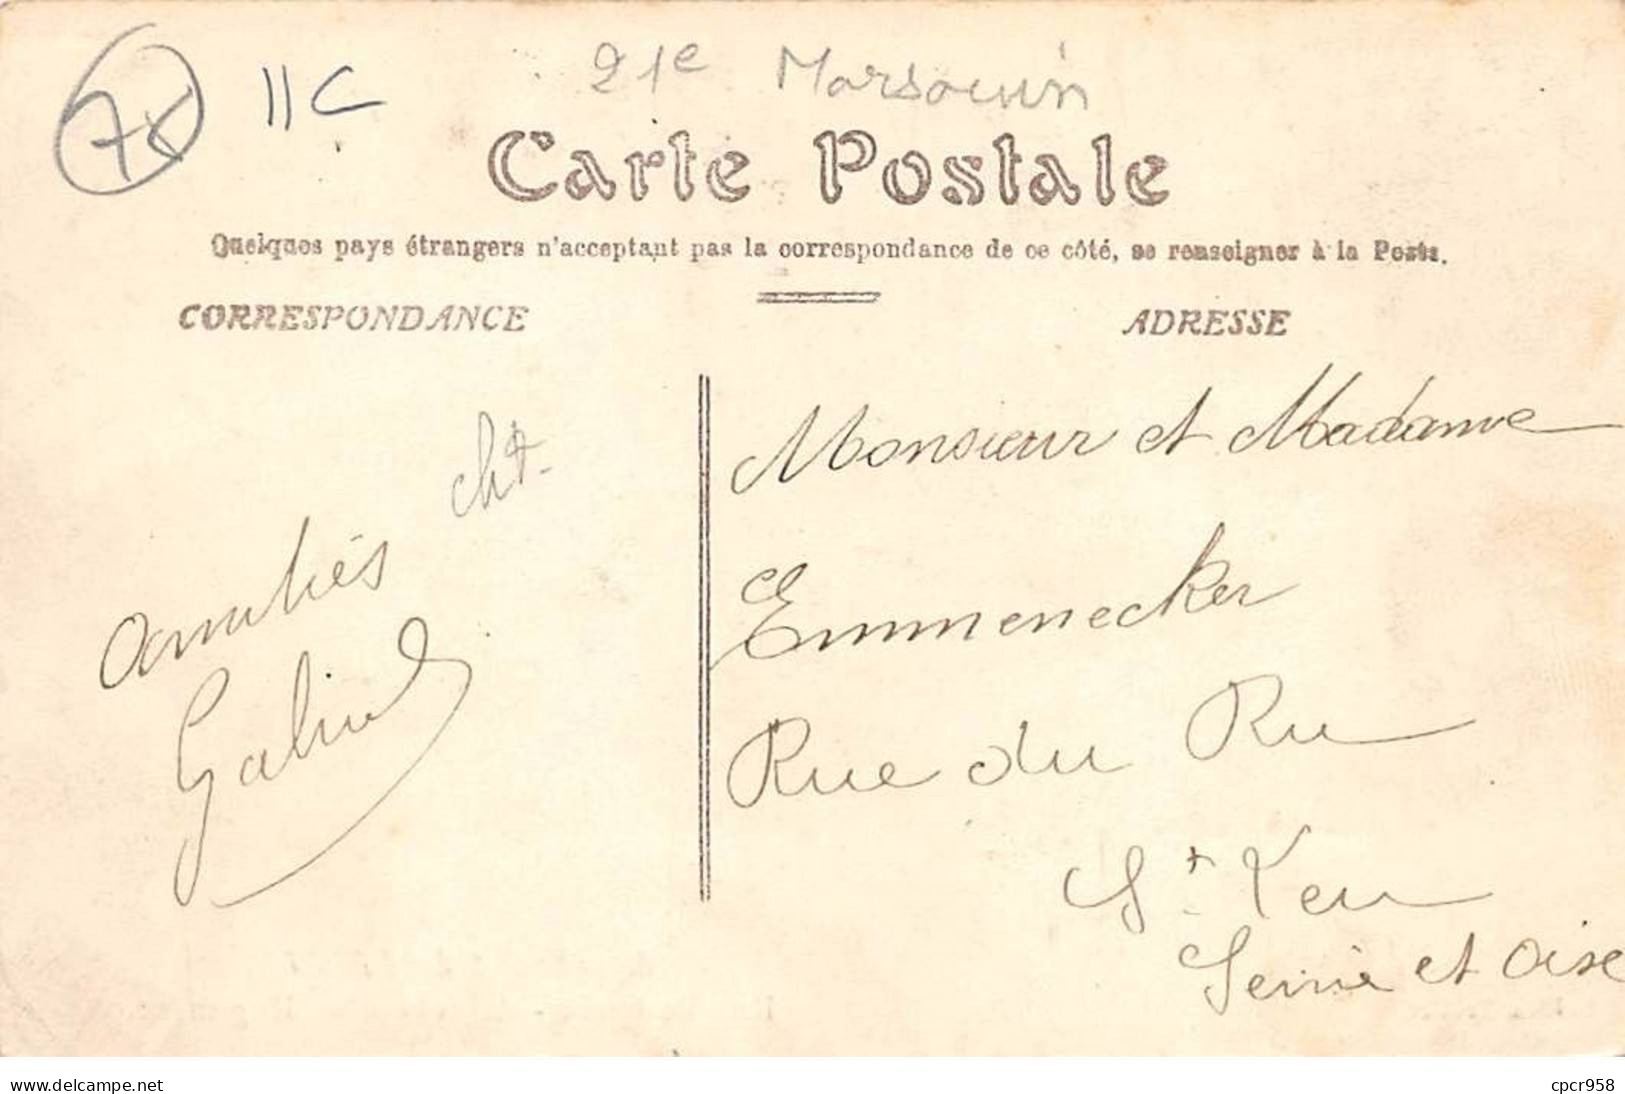 75 11C
21e Marsouin
Carte Postale
Quelques pays étrangers n'acceptant pas la correspondance de ce côté, se renseigner à la Poste.
CORRESPONDANCE
ADRESSE
cht.
amitiés
Monsieur et Madame
Emmenecker
Rue du Ru
St Leu
Seine et Oise
www.delcampe.net
cpcr958